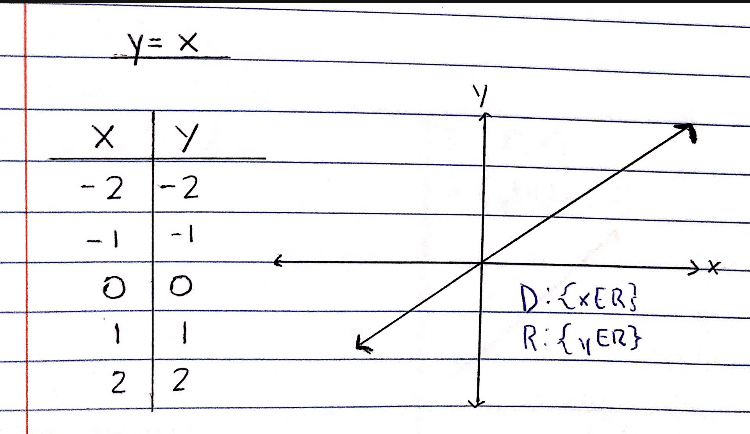 y = x
X Y
-2 -2
-1 -1
0 0
1 1
2 2
y
x
D: {xER}
R: {yER}